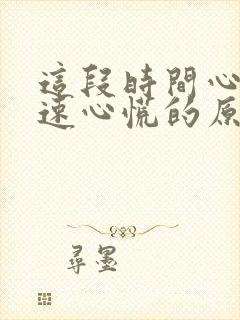 這段時間心
速心慌的原
尋墨